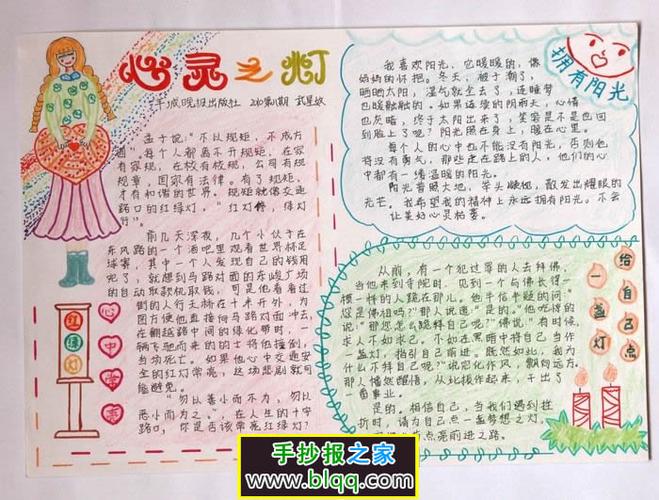 心灵之灯
羊城晚报出版社
孟子说:“不以规矩,不成方
圆”,每个人都离不开规矩,在家
有家规,在校有校规,公司有规
规章,国家有法律。有了规矩,
才有和谐的世界。规矩就像交通
路口的红绿灯,“红灯停,绿灯
行”。
前几天深夜,几个小伙子在
东风路的一个酒吧里观看世界杯足
球赛,其中一个人发现自己的钱用
完了,就想到马路对面的东峻广场
的自动取款机取钱,可是他看看过
街的人行天桥在十米开外,为
图方便他直接向马路对面冲去,
在翻越路中间的绿化带时,一
辆飞驰而来的的士将他撞倒,
当场死亡。如果他心中交通安
全的红灯常亮,这场悲剧就可
能避免。
“勿以善小而不为,勿以
恶小而为之。”,在人生的十字
路口,你是否该常亮红绿灯?
红绿灯
心中常亮
拥有阳光
我喜欢阳光,它暖暖的,像
妈妈的怀抱。冬天,被子潮了,
晒晒太阳,湿气就坐去了,连睡梦
也暖融融的。如果连续的阴雨天,心情
也灰暗,终于太阳出来了,笑容是不是也回
到脸上了呢?阳光照在身上,暖在心里。
每个人的心中也不能没有阳光,否则他
将没有勇气,那些走在路上的人,他们的心
中都有一缕温暖的阳光。
阳光普照大地,举头
散发出耀眼的
光芒。我希望我的精神上永远拥有阳光。不会
让美好心灵枯萎。
给自己点一盏灯
从前,有一个犯过罪的人去拜佛,
当他来到寺院时,见到一个与佛长得一
模一样的人跪在那儿。他半信半疑的问:“
您是佛祖吗?”那人说道:“是的。”他吃惊的
说:“那您怎么跪拜自己呢?”佛说:“有时候,
求人不如求己。不如在黑暗中将自己当作
一盏灯,指引自己前进。既然如此,我为
什么不拜自己呢?”说完化作风,飘向远方。
那人幡然醒悟,从此振作起来,干出了
番事业。
是的。相信自己,当我们遇到挫
折时,请为自己点一盏梦想之灯,
点亮前进之路。
手抄报之家
www.blqq.com